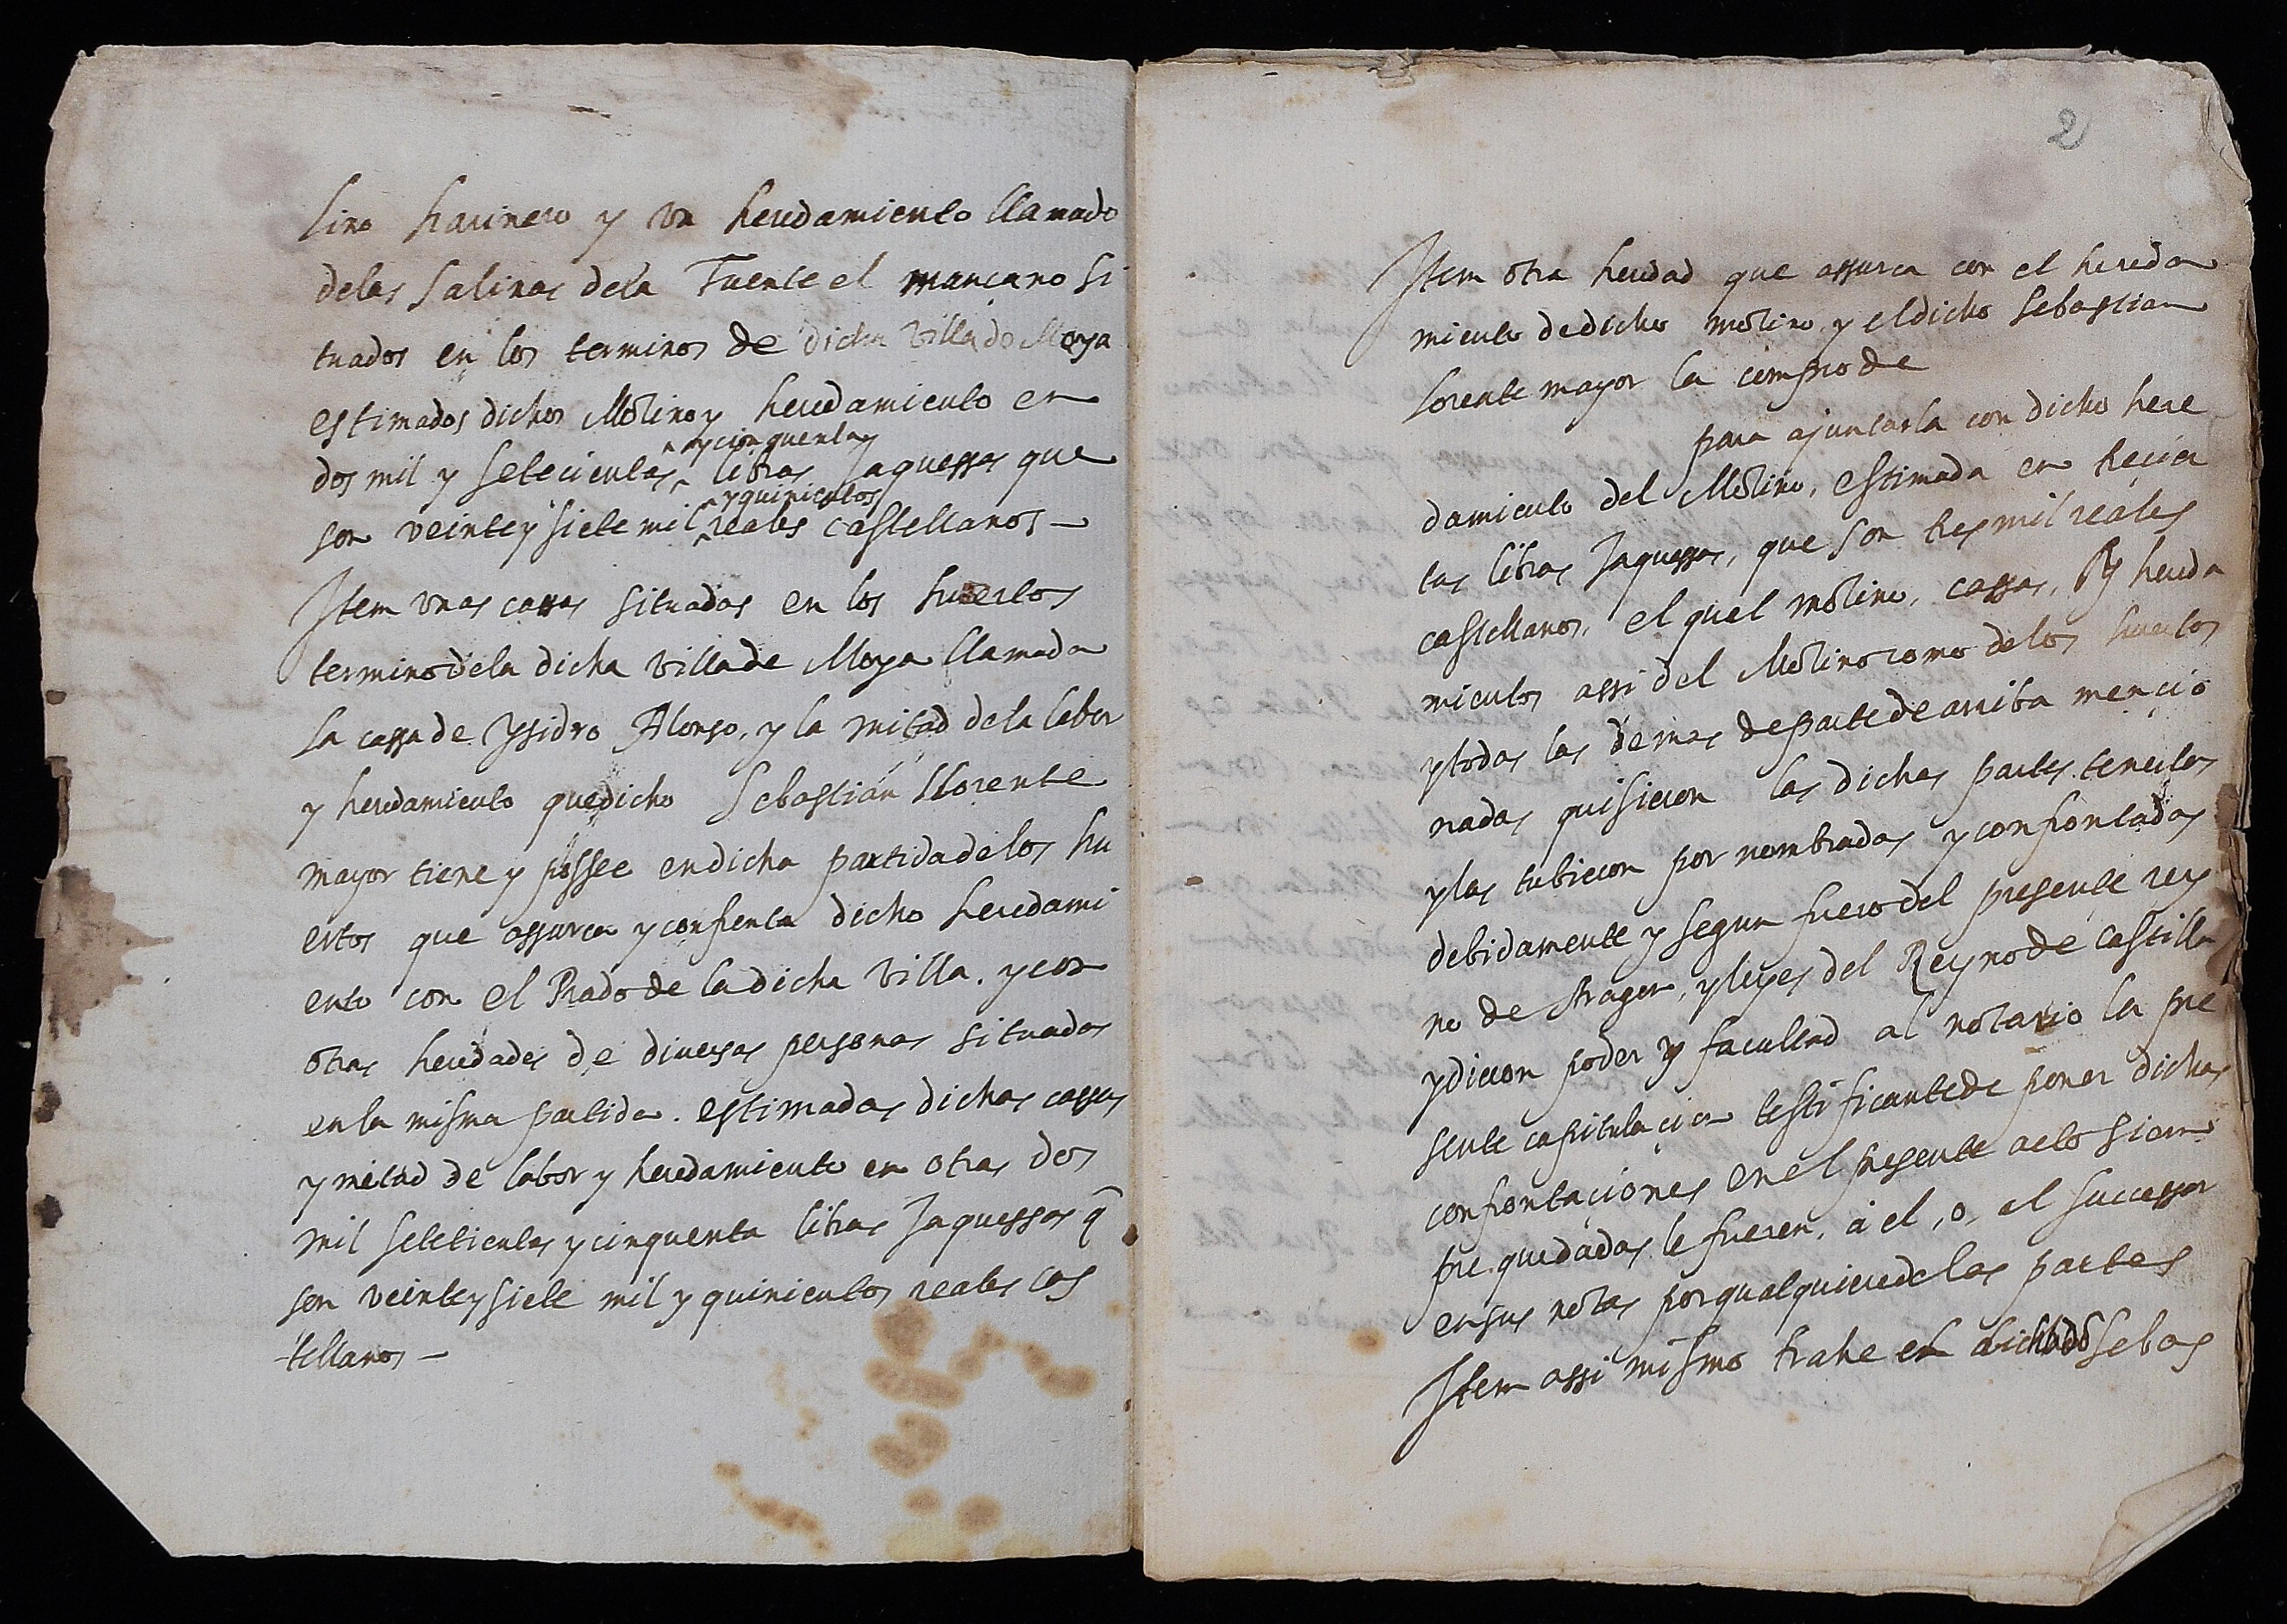 lino harinero y vn heredamiento llamado
delas salinas dela Fuente el mançano si
tuados en los terminos de dicha villa de Moya
estimados dichos Molino y heredamiento en
ycinquentay
dos mil y setecientas libras Jaquessas que
yquinientos
son veintey siete mil reales castellanos —
Item vnas cassas situadas en los huertos
termino dela dicha villa de Moya llamada
la cassa de Ysidro Alonso, y la mitad de la labor
y heredamiento que dicho Sebastian llorente
mayor tiene y possee en dicha partida de los hu
ertos que assurca y confrenta dicho heredami
ento con el Prado de la dicha villa. y con
otras heredades de diuersas personas situadas
en la misma partida. estimadas dichas cassas
y mitad de labor y heredamiento en otras dos
mil setecientas y cinquenta libras Jaquessas q̄
son veintey siete mil y quinientos reales cas
tellanos —
2
Item otra heredad que assurca con el hereda
miento de dicho molino y el dicho Sebastian
lorente mayor la compro de
para ajuntarla con dicho here
damiento del Molino, estimada en trecien
tas libras Jaquessas, que son tres mil reales
castellanos, el qual molino, cassas, y hereda
mientos assi del Molino como de los huertos
y todas las demas de parte de arriba mencio
nadas quisieron las dichas partes tenerlos
y las tubieron por nombradas y confrontadas
debidamente y segun fuero del presente rey
no de Aragon, y leyes del Reyno de Castilla
y dieron poder y facultad al notario la pre
sente capitulacion testificante de poner dichas
confrontaciones en el presente acto siem
pre quedadas le fueren, à el, o, al successor
en sus notas por qualquiere de las partes
Item assi mismo trahe en dicho Sebas